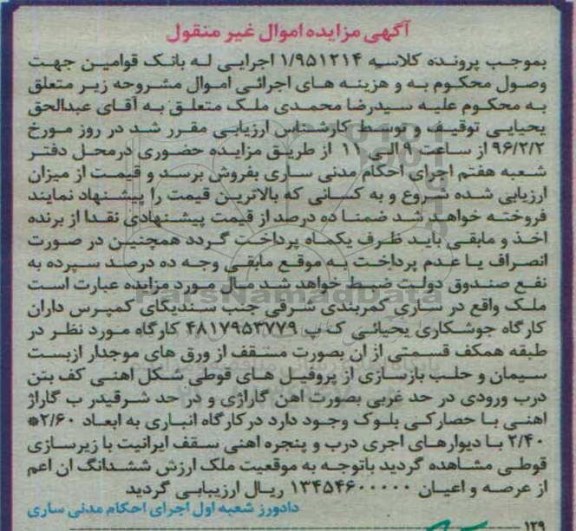 آگهی مزایده اموال غیر منقول
بموجب پرونده کلاسه ۱/۹۵۱۲۱۴ اجرایی له بانک قوامین جهت
وصول محکوم به و هزینه های اجرائی اموال مشروحه زیر متعلق
به محکوم علیه سیدرضا محمدی ملک متعلق به آقای عبدالحق
یحیایی توقیف و توسط کارشناس ارزیابی مقرر شد در روز مورخ
۹۶/۲/۲ از ساعت ۹ الی ۱۱ از طریق مزایده حضوری درمحل دفتر
شعبه هفتم اجرای احکام مدنی ساری بفروش برسد و قیمت از میزان
ارزیابی شده شروع و به کسانی که بالاترین قیمت را پیشنهاد نمایند
فروخته خواهد شد ضمنا ده درصد از قیمت پیشنهادی نقدا از برنده
اخذ و مابقی باید ظرف یکماه پرداخت گردد همچنین در صورت
انصراف یا عدم پرداخت به موقع مابقی وجه ده درصد سپرده به
نفع صندوق دولت ضبط خواهد شد مال مورد مزایده عبارت است
ملک واقع در ساری کمربندی شرقی جنب سندیکای کمپرس داران
کارگاه جوشکاری یحیائی ک پ ۴۸۱۷۹۵۳۷۷۹ کارگاه مورد نظر در
طبقه همکف قسمتی از ان بصورت مسقف از ورق های موجدار ازبست
سیمان و حلب بازسازی از پروفیل های قوطی شکل اهنی کف بتن
درب ورودی در حد غربی بصورت اهن گاراژی و در حد شرقیدر ب گاراژ
اهنی با حصارکی بلوک وجود دارد درکارگاه انباری به ابعاد ۲/۶۰*
۲/۴۰ با دیوارهای اجری درب و پنجره اهنی سقف ایرانیت با زیرسازی
قوطی مشاهده گردید باتوجه به موقعیت ملک ارزش ششدانگ ان اعم
از عرصه و اعیان ۱۳۴۵۴۶۰۰۰۰۰ ریال ارزیبابی گردید
دادورز شعبه اول اجرای احکام مدنی ساری
۱۲۹
ParsNamadData